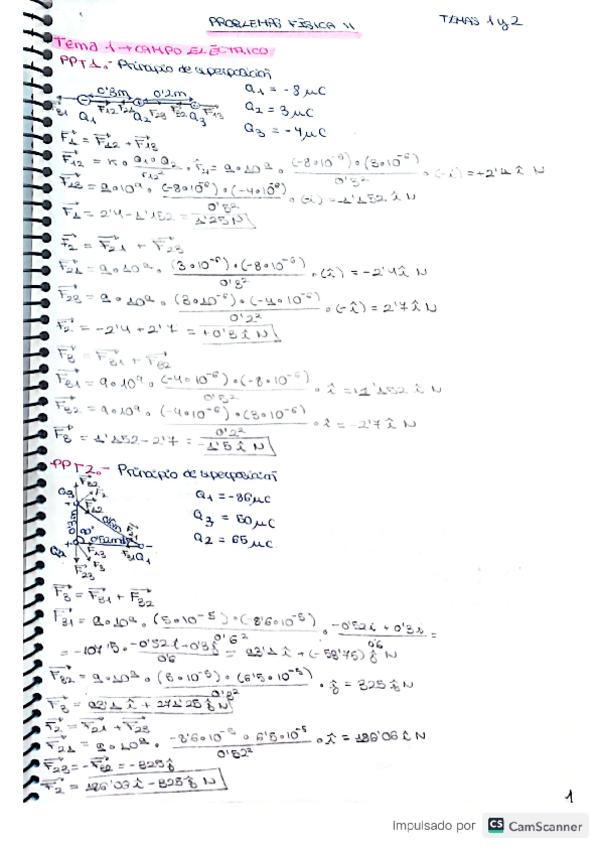 PROBLEMAS FÍSICA II TEMAS 1 y 2
Tema 1 → CAMPO ELÉCTRICO
PPT1.- Principio de superposición
0'3m 0'2m Q1 = -8 μC
F31 Q1 F12 F21 Q2 F23 F32 Q3 F13
Q2 = 3 μC
Q3 = -4 μC
F1 = F12 + F13
F12 = K · Q1 · Q2 / r12² · = 9·10⁹ · (-8·10⁻⁶)·(3·10⁻⁶) / 0'3² · (-i) = +2'4 i N
F13 = 9·10⁹ · (-8·10⁻⁶)·(-4·10⁻⁶) / 0'5² · (-i) = -1'152 i N
F1 = 2'4 - 1'152 = 1'25 N
F2 = F21 + F23
F21 = 9·10⁹ · (3·10⁻⁶)·(-8·10⁻⁶) / 0'3² · (i) = -2'4 i N
F23 = 9·10⁹ · (3·10⁻⁶)·(-4·10⁻⁶) / 0'2² · (-i) = 2'7 i N
F2 = -2'4 + 2'7 = +0'3 i N
F3 = F31 + F32
F31 = 9·10⁹ · (-4·10⁻⁶)·(-8·10⁻⁶) / 0'5² · i = 1'152 i N
F32 = 9·10⁹ · (-4·10⁻⁶)·(3·10⁻⁶) / 0'2² · i = -2'7 i N
F3 = 1'152 - 2'7 = -1'5 i N
PPT2.- Principio de superposición
Q1 = -86 μC
Q3 = 50 μC
Q2 = 65 μC
F3 = F31 + F32
F31 = 9·10⁹ · (5·10⁻⁵)·(-8'6·10⁻⁵) / 0'6² · -0'52 i + 0'3 j / 0'6 =
= -107'5 · -0'52 i + 0'3 j / 0'6 = 93'1 i + (-53'75) j N
F32 = 9·10⁹ · (5·10⁻⁵)·(6'5·10⁻⁵) / 0'3² · j = 325 j N
F3 = 93'1 i + 271'25 j N
F2 = F21 + F23
F21 = 9·10⁹ · -8'6·10⁻⁵ · 6'5·10⁻⁵ / 0'52² · i = 186'06 i N
F23 = -F32 = -325 j
F2 = 186'07 i - 325 j N
1
Impulsado por CS CamScanner